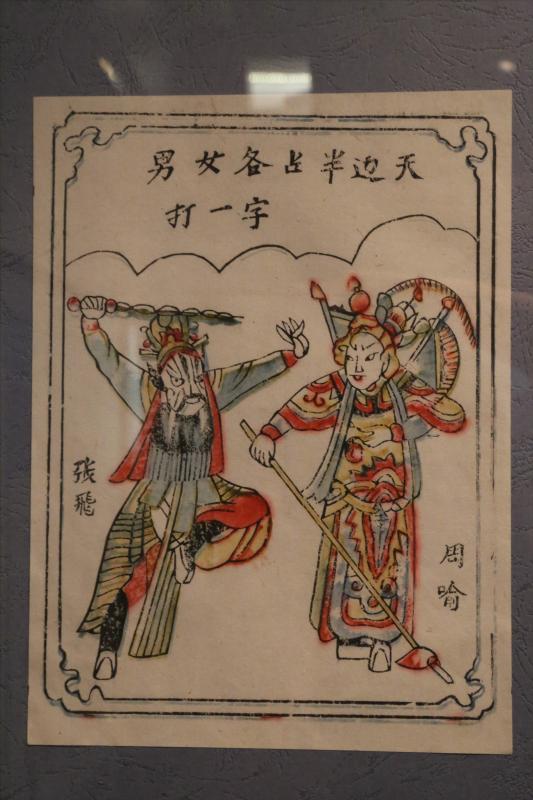 男女各占半边天
打一字
张飛
周喻